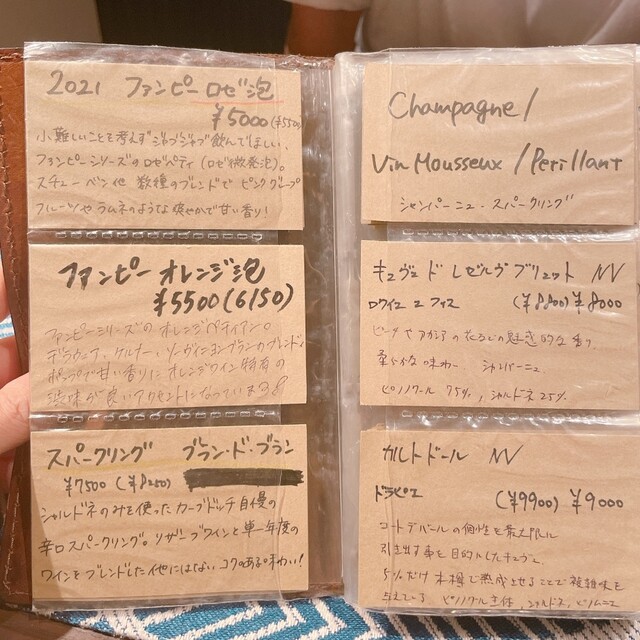 2021 ファンピー ロゼ泡
¥5000(¥5500)
小難しいことを考えずジャブジャブ飲んでほしい、
ファンピーシリーズのロゼペティ(ロゼ微発泡)。
スチューベン他 数種のブレンドで ピンクグレープ
フルーツやラムネのような爽やかで甘い香り!
ファンピー オレンジ泡
¥5500(6150)
ファンピーシリーズの オレンジペティアン。
デラウェア、ケルナー、ソーヴィニヨンブランのブレンド。
ポップで甘い香りに オレンジワイン特有の
渋味が良いアクセントになっています
スパークリング ブラン・ド・ブラン
¥7500 (¥8250)
シャルドネのみを使ったカーブドッチ自慢の
辛口スパークリング。リザーブワインと単一年度の
ワインをブレンドした他にはない、コクのある味わい!
Champagne/
Vin Mousseux / Perillant
シャンパーニュ・スパークリング
キュヴェ ド レゼルヴ ブリュット NV
(¥8800) ¥8000
ピーチやアカシアの花などの魅惑的な香り。
柔らかな味わい シャンパーニュ
ピノノワール 75%、シャルドネ 25%
カルトドール NV
ドラピエ (¥9900) ¥9000
コートデバールの個性を最大限に
引き出す事を目的としたキュヴェ。
5%だけ木樽で熟成させることで複雑味を
与えている ピノノワール主体、シャルドネ、ピノムニエ